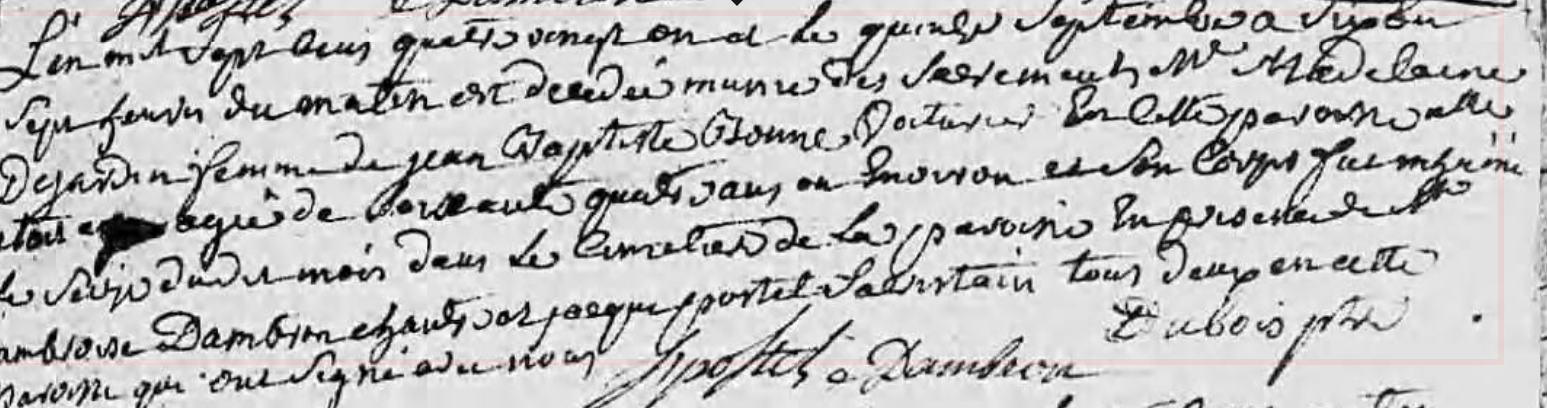 L'an mil sept cens quatre vingt on et le quinze septembre a six ou
sept heures du matin est decedée munie des sacremens Mie Madelaine
Dejardin femme de jean Baptiste Bonne Voiturier En Cette paroisse elle
etoit agée de soixante quatre ans ou Environ et son Corps fut inhumé
le seize dudit mois dans le Cimetiere de la paroisse En presence de
ambroise Dambron chantre et jacque postel sacristain tous deux en cette
paroisse qui ont signé avec nous
J postel a Dambron
Dubois ptre